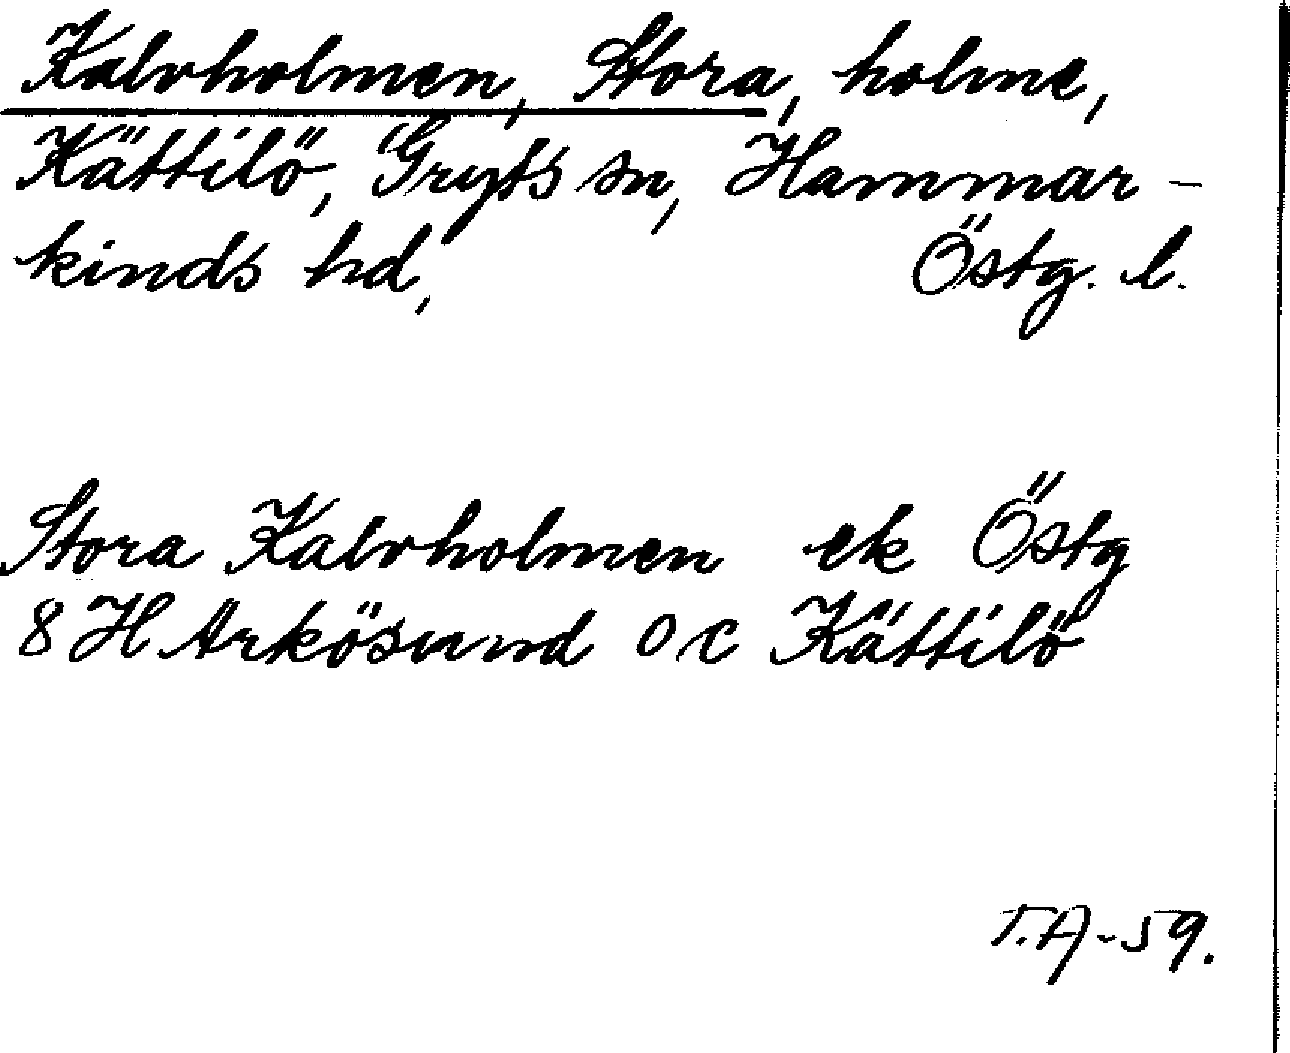 Kalvholmen, Stora, holme,
Kättilö, Gryts sn, Hammar-
kinds hd, Östg. l.
Stora Kalvholmen ek Östg
8 H Arkösund o c Kättilö
T.A-59.